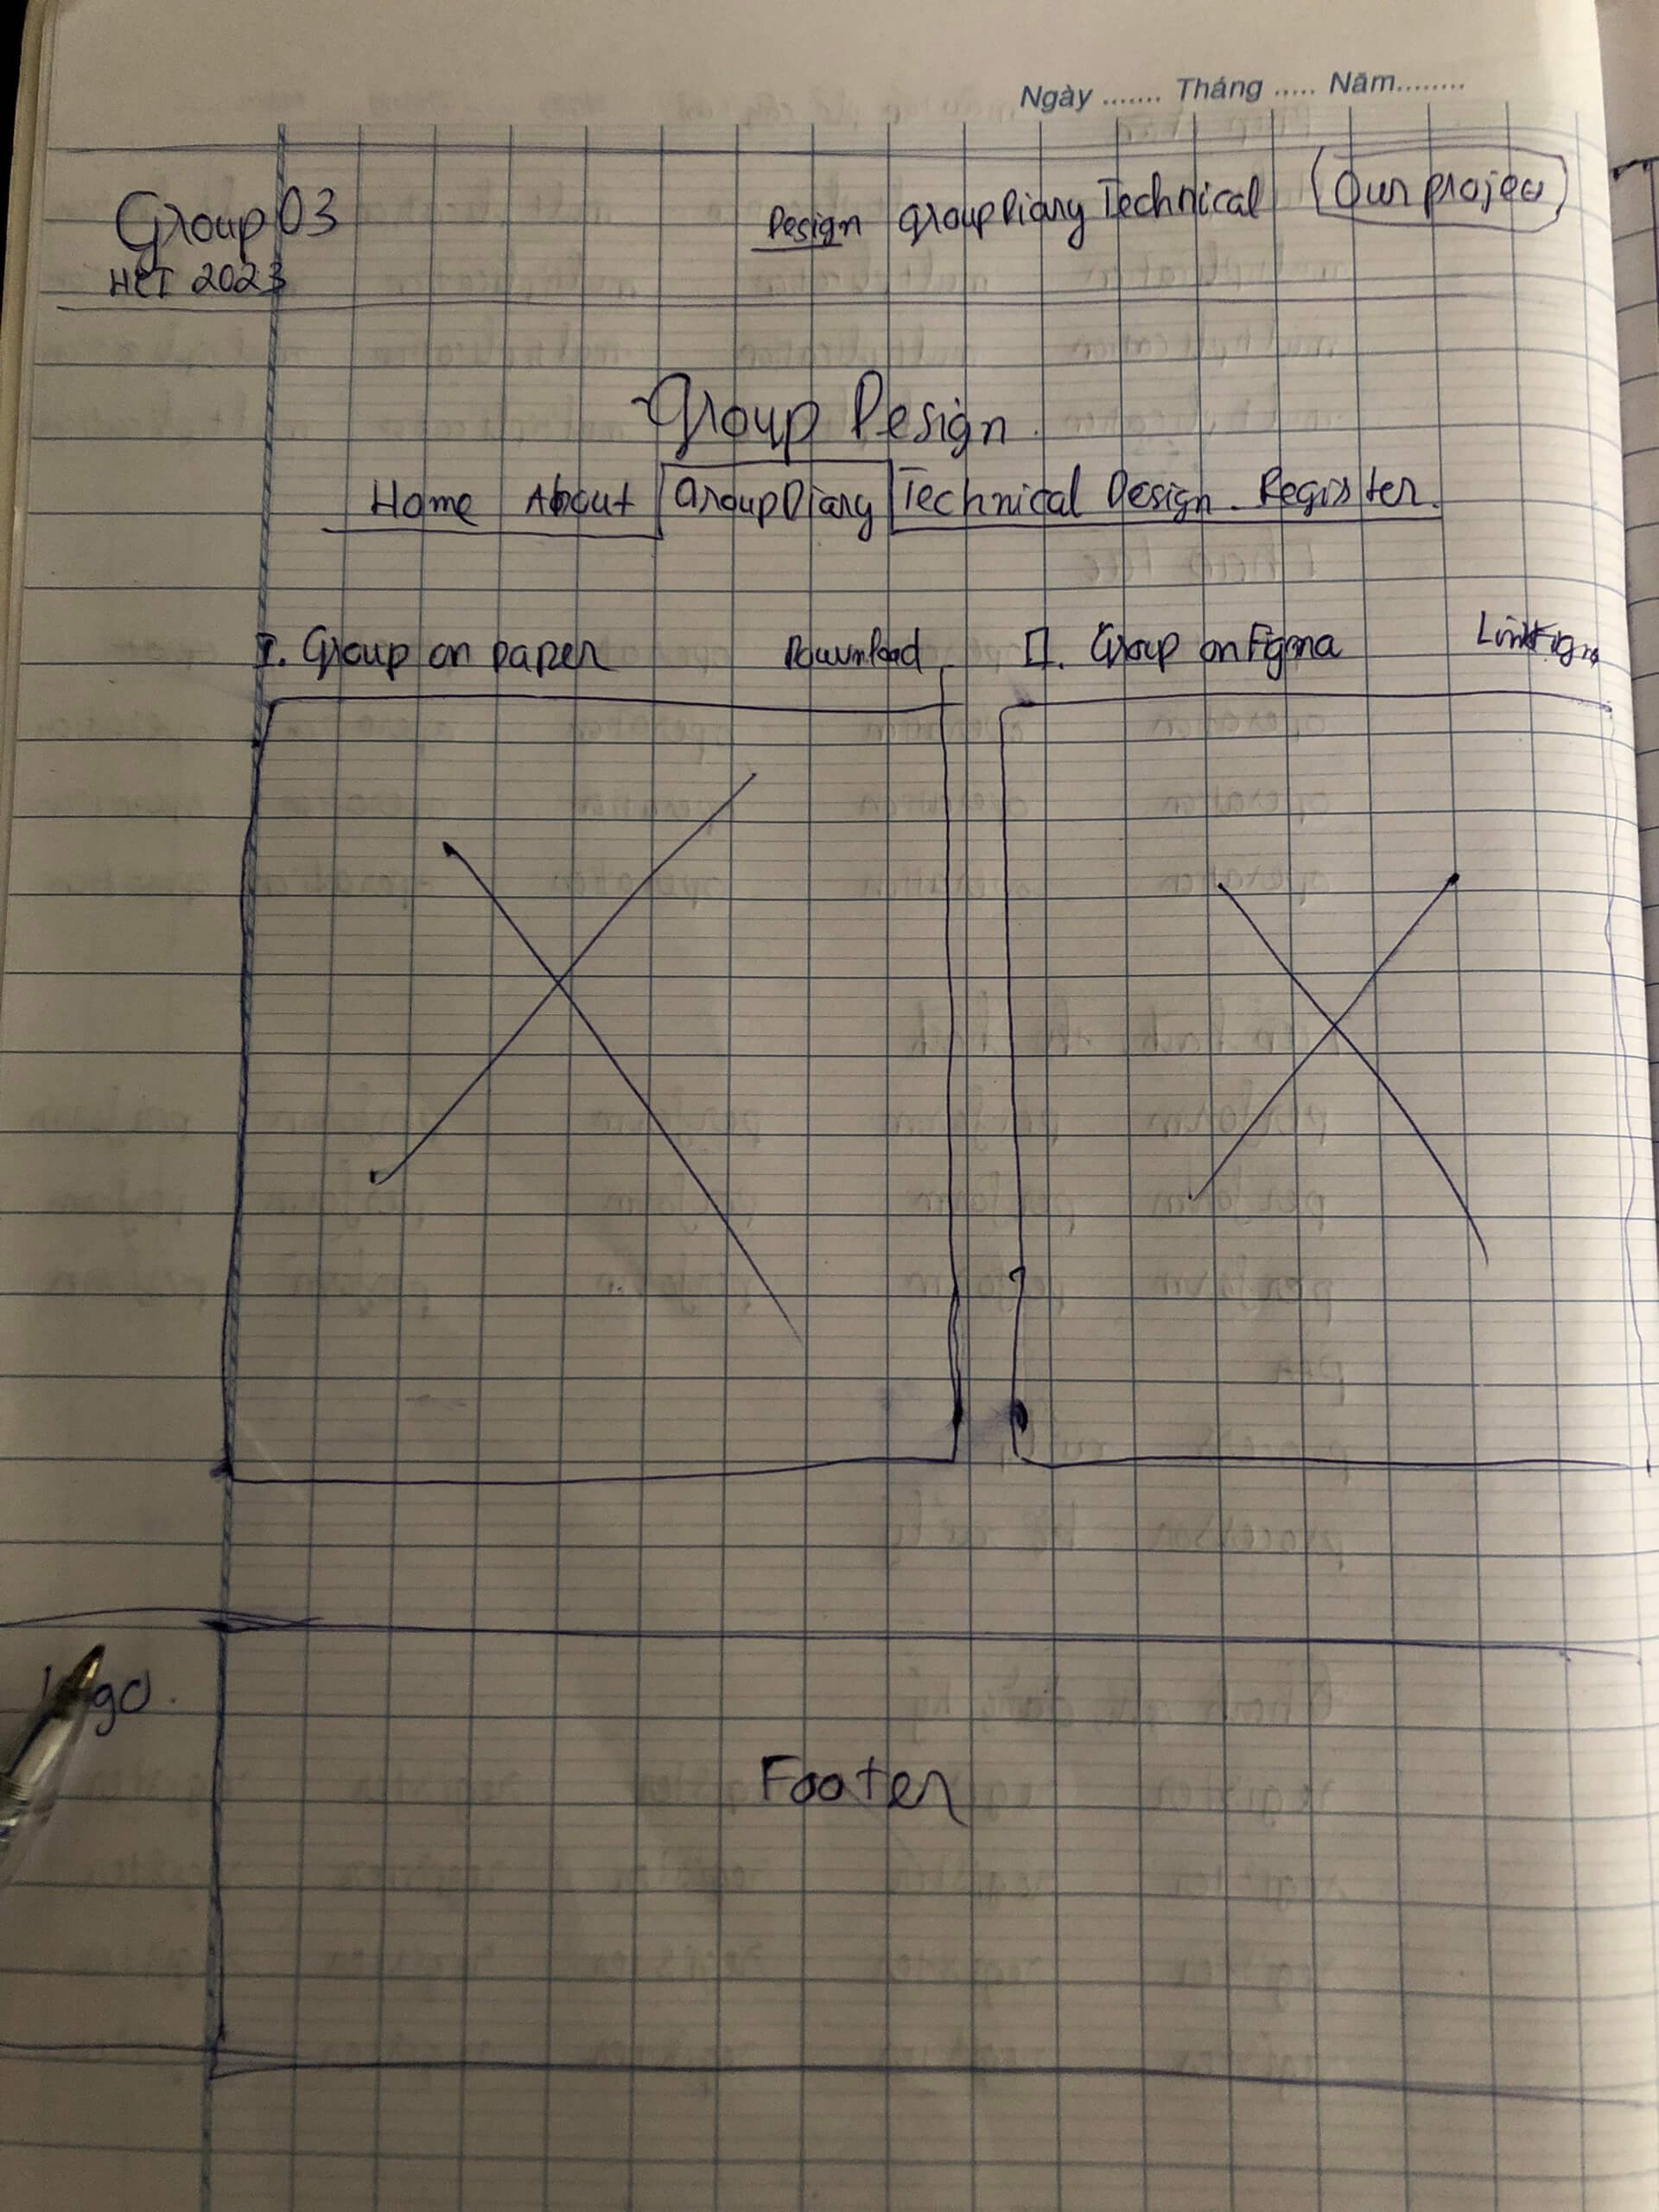 Ngày ....... Tháng ..... Năm........
Group 03
Design GroupDiary Technical Our projec
HCI 2023
Group Design
Home About GroupDiary Technical Design Register
I. Group on paper Download II. Group on Figma
Footer